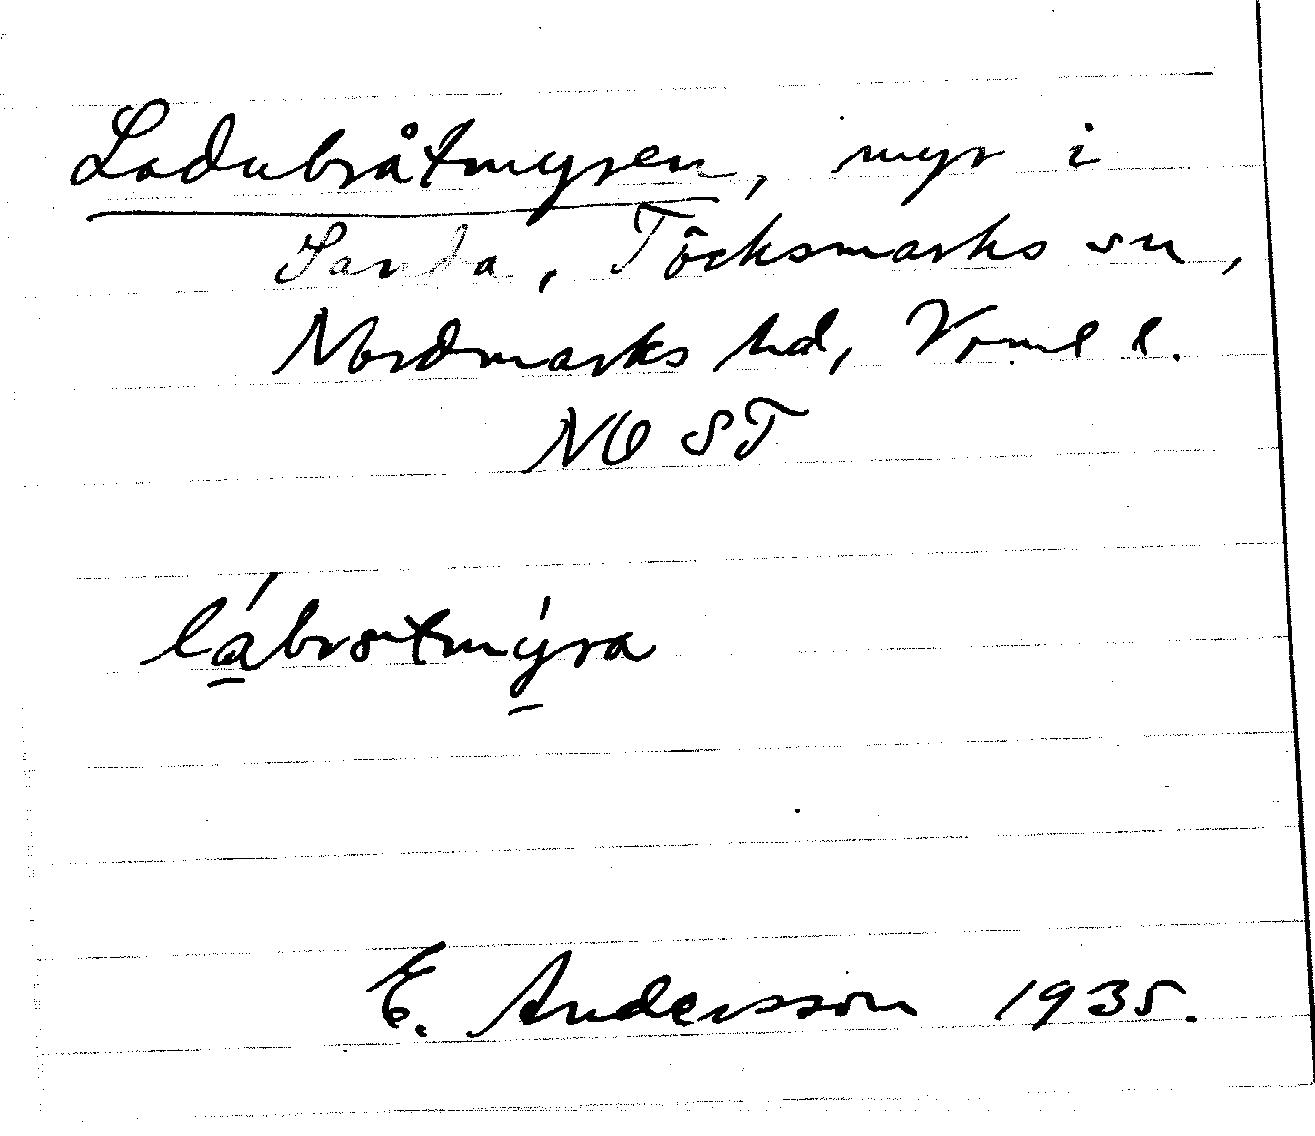 Ladubråtmyren, myr i
Sanda, Töcksmarks sn,
Nordmarks hd, Vrml l.
NO ST
E. Andersson 1935.